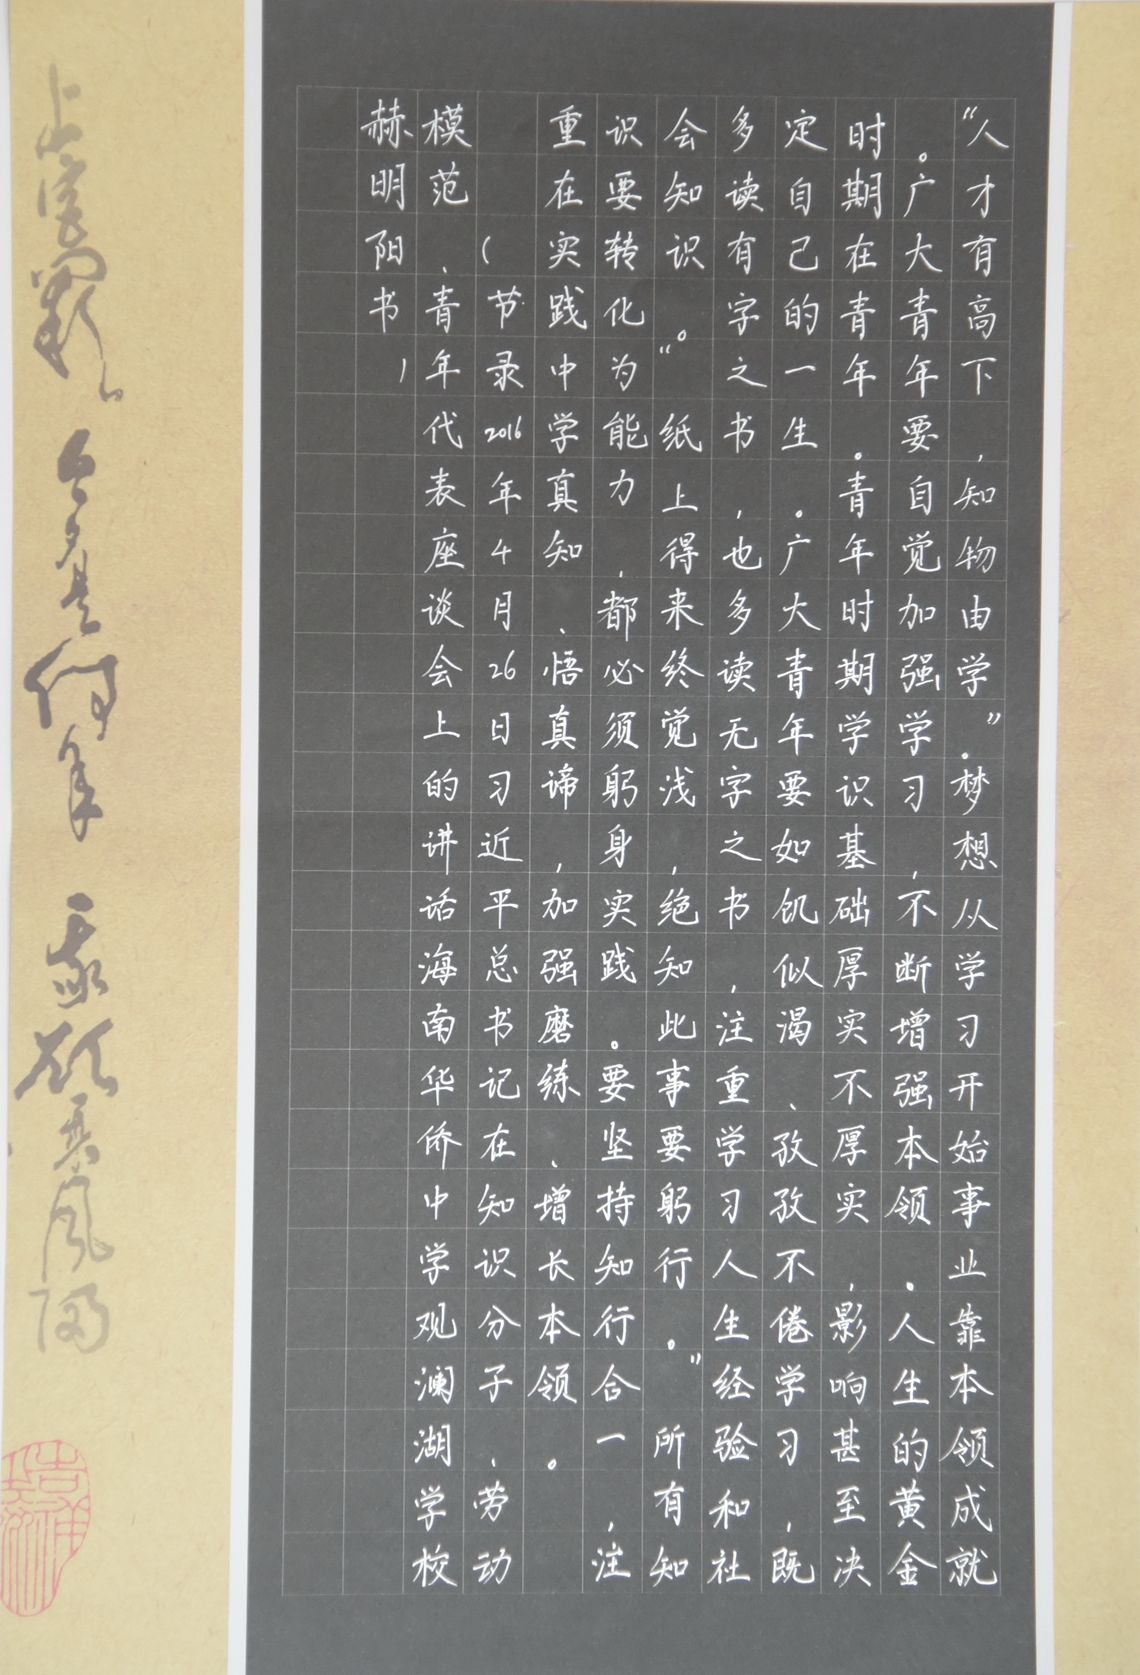 “人才有高下，知物由学”。梦想从学习开始事业靠本领成就
。广大青年要自觉加强学习，不断增强本领。人生的黄金
时期在青年。青年时期学识基础厚实不厚实，影响甚至决
定自己的一生。广大青年要如饥似渴、孜孜不倦学习，既
多读有字之书，也多读无字之书，注重学习人生经验和社
会知识。“纸上得来终觉浅，绝知此事要躬行。”所有知
识要转化为能力，都必须躬身实践。要坚持知行合一，注
重在实践中学真知、悟真谛，加强磨练、增长本领。
（节录2016年4月26日习近平总书记在知识分子、劳动
模范、青年代表座谈会上的讲话海南华侨中学观澜湖学校
赫明阳书）
今夕是何年 我欲乘风归